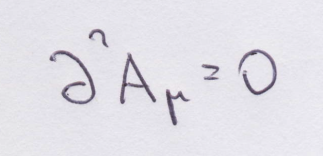 ∂²A_μ = 0